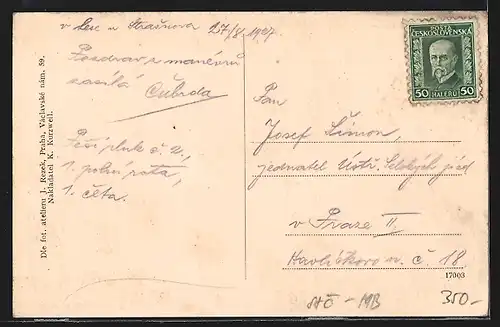 v lese u Strašnova 27/8 1927
Pozdrav z manévrů
zasílá
Čuhrda
Pěší pluk č. 2,
1. polní rota,
1. četa.
Dle fot. atelieru J. Rezek, Praha, Václavské nám. 59.
Nakladatel K. Kurzweil.
POŠTA
ČESKOSLOVENSKÁ
50 HALÉŘŮ 50
Pan
Josef Šimon,
jednatel Ústř. Selských jed
v Praze II
Havlíčkovo n. č. 18
17003
350.-